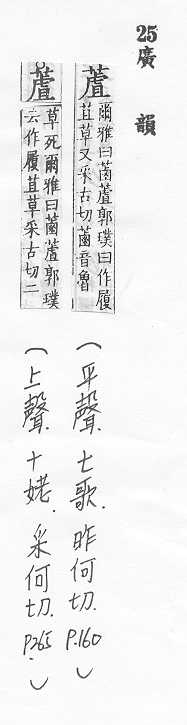 25廣韻
蔖
爾雅曰蔨蔖郭璞曰作履
苴草又采古切蔨音魯
(平聲.七歌.昨何切.P.160)
蔖
草死爾雅曰蔨蔖郭璞
云作履苴草采古切二
(上聲.十姥.采何切.P.265.)